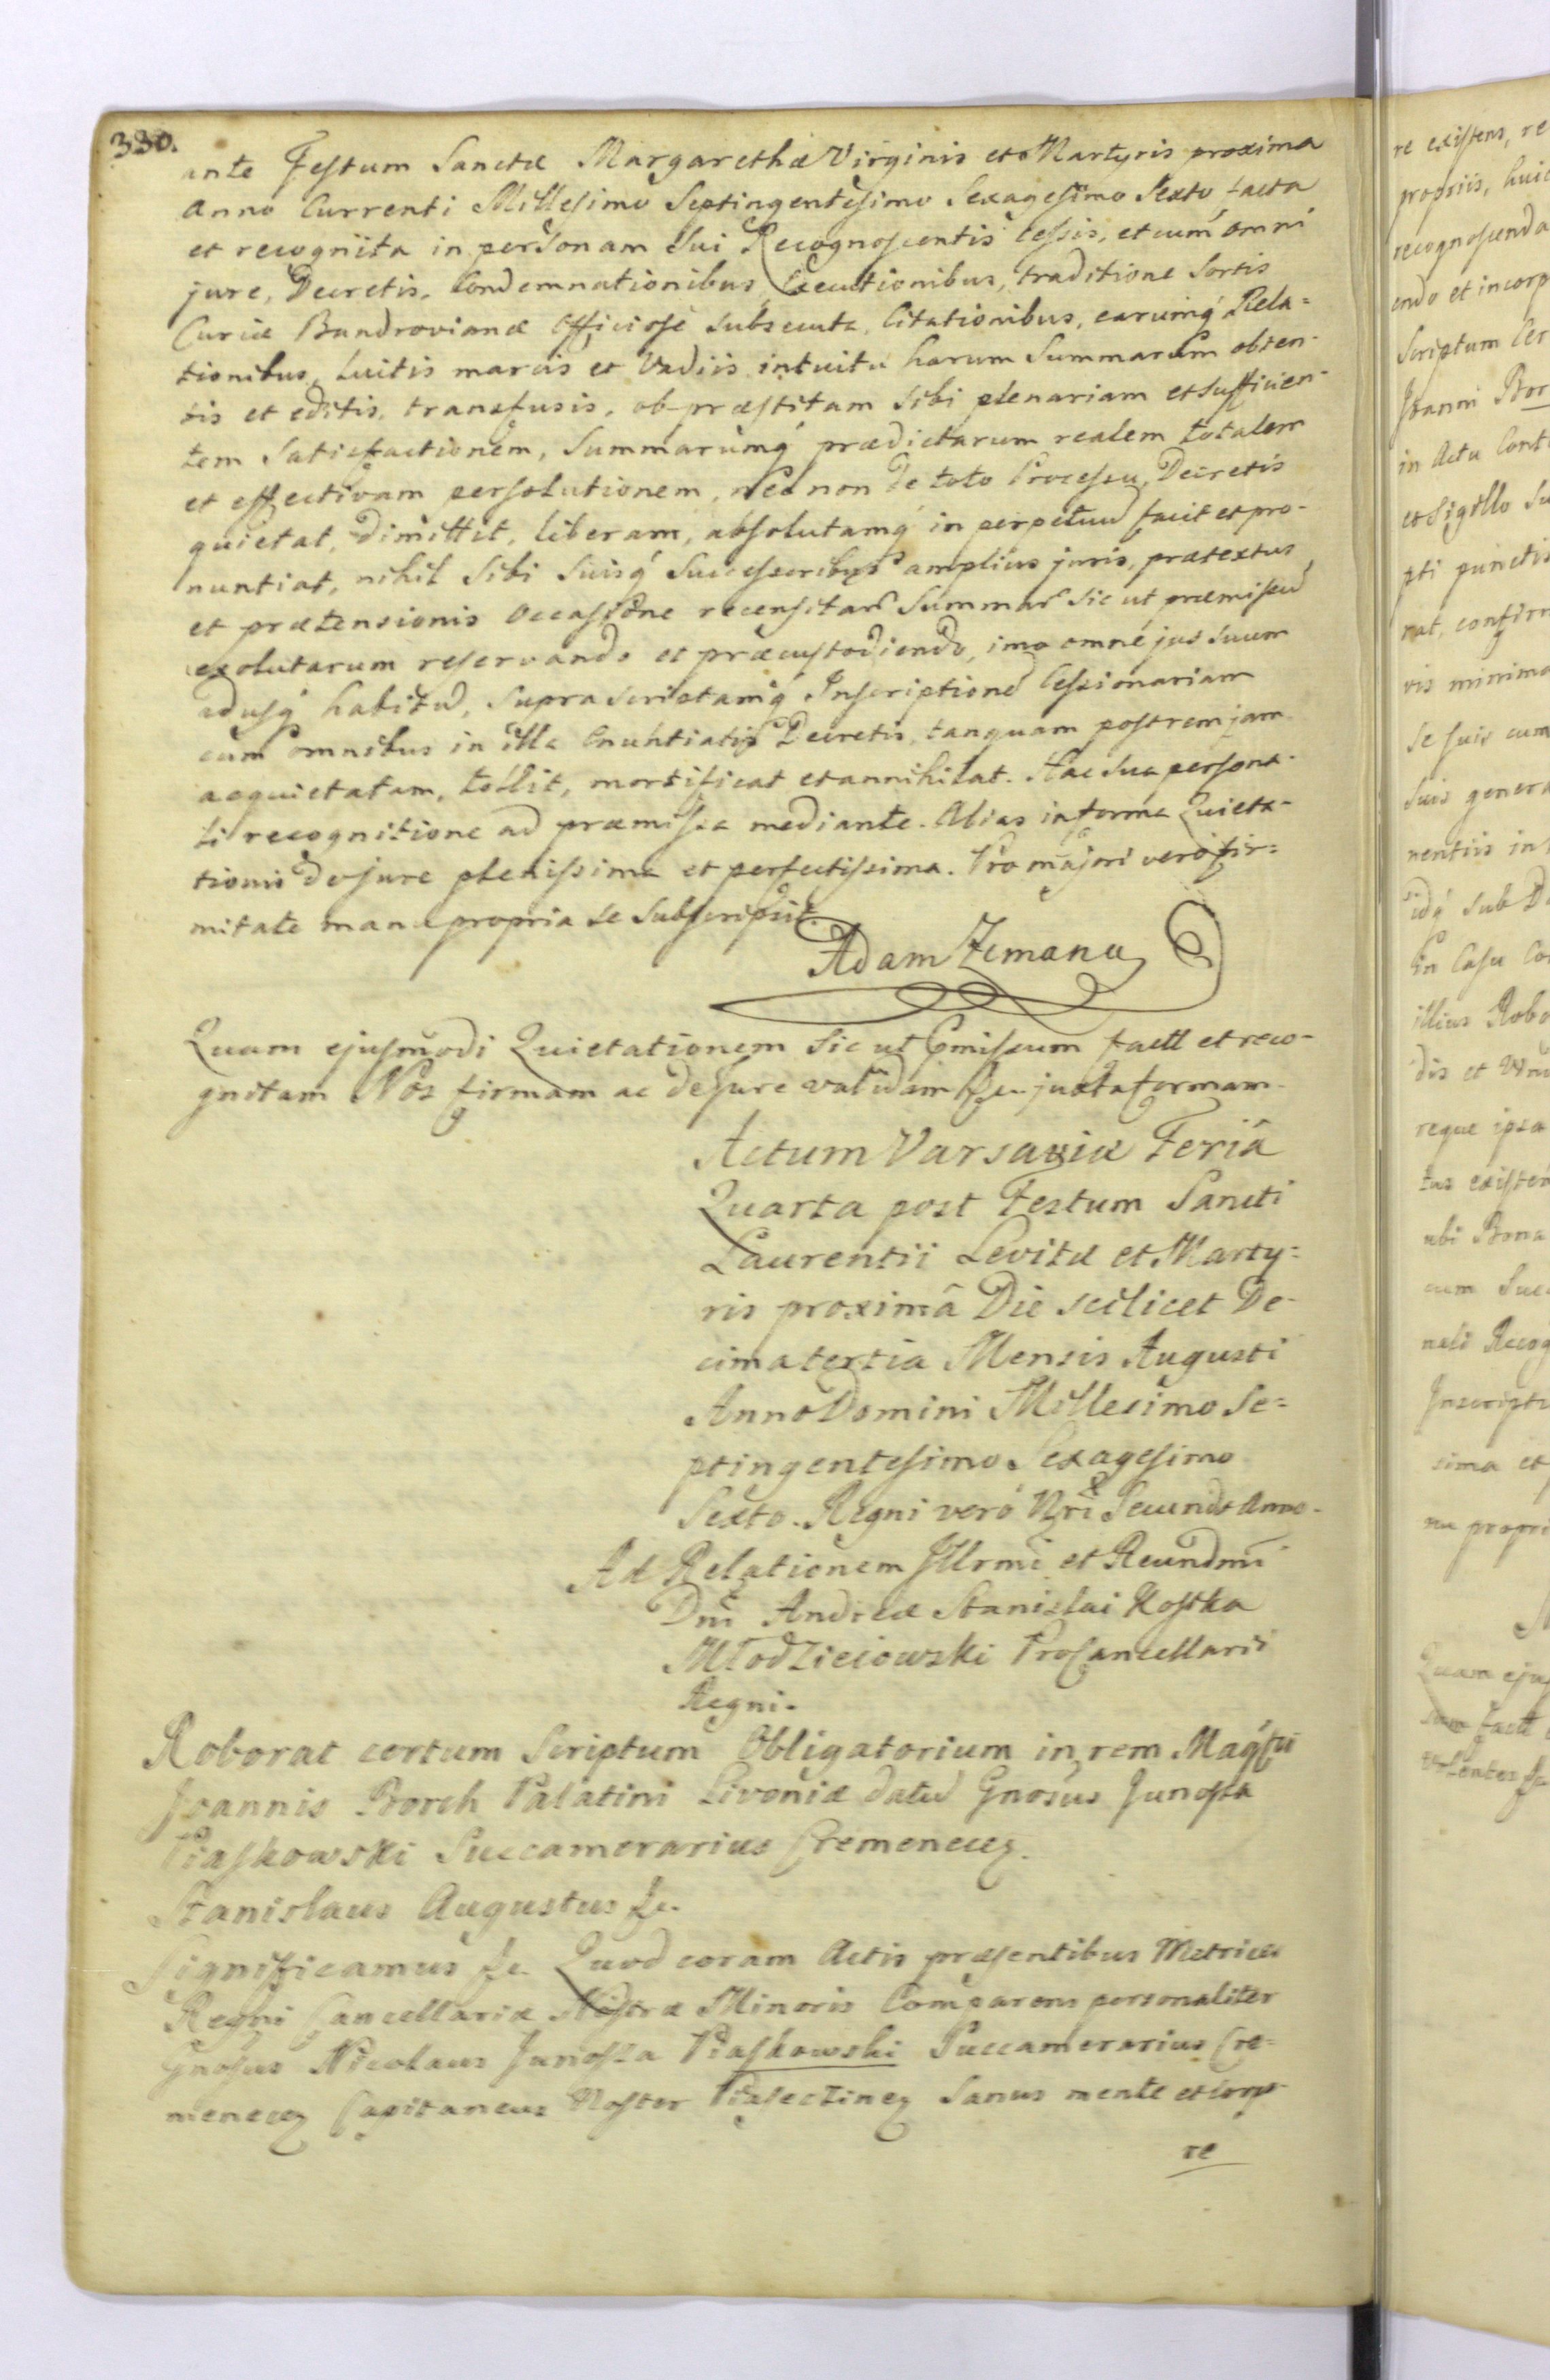 330.
ante Festum Sanctæ Margarethæ Virginis et Martyris proxima
Anno Currenti Millesimo Septingentesimo Sexagesimo Sexto facta
et recognita in personam Sui Recognoscentis cessis, et cum omni
jure, Decretis, Condemnationibus, Executionibus, traditione Sortis
Curiæ Bandrovianæ Officiose subsecuta, Citationibus, earumq́ Rela=
tionibus, Luitis marcis et Vadiis intuitu harum Summarum obten-
tis et editis, transfusis, ob præstitam Sibi plenariam et sufficien-
tem Satisfactionem, Summarumq́ prædictarum realem totalem
et effectivam persolutionem, nec non de toto Processu, Decretis
quietat, Dimittit, liberam, absolutamq́ in perpetuum facit et pro-
nuntiat, nihil Sibi Suisq́ Successoribus amplius juris, prætextus
et prætensionis Occasione recensitar Summar Sic ut præmissum
exolutarum reservando et præcustodiendo, imo omne jus Suum
adusq́ habitum, Suprascriptamq́ Inscriptionem Cessionariam
cum omnibus in illa Enuntiatis Decretis, tanquam postrem jam
acquietatam, tollit, mortificat et annihilat. Hac Sua persona-
li recognitione ad præmissa mediante. Alias in forma Quieta-
tionis de Jure plenissima et perfectissima. Pro majori vero fir=
mitate manu propria se Subscripsit.
Adam Zemanu
Quam ejusmodi Quietationem Sic ut Pmissum fact et reco-
gnitam Nos firmam ac de Jure validam &c. juxta formam.
Actum Varsaviæ Feriâ
Quarta post Festum Sancti
Laurentii Levitæ et Marty=
ris proximâ Die scilicet De-
cimatertia Mensis Augusti
Anno Domini Millesimo Se=
ptingentesimo Sexagesimo
Sexto. Regni veró Nri Secundo Anno.
Ad Relationem Illrmi et Reundmi
Dni Andreæ Stanislai Kostka
Młodzieiowski ProCancellarii
Regni.
Roborat certum Scriptum Obligatorium in rem Magći
Joannis Borch Palatini Livoniæ datum Gnosus Junosza
Piaskowski Succamerarius Cremenecen.
Stanislaus Augustus &c.
Significamus &c. Quod coram Actis præsentibus Metrices
Regni Cancellariæ Nostræ Minoris Comparens personaliter
Gnosus Nicolaus Junosza Piaskowski Succamerarius Cre=
menecen Capitaneus Noster sanus mente et corpo-
re
re existens, re
propriis, huic
recognoscenda
endo et incorp
Scriptum Cer
Joanni Bor
in Actu Cont
et Sigillo Su
pti punctis
rat, confirm
vis minima
Se suis cum
suis genera
nentiis in
idq́ sub D
in Casu Co
illius Robo
dis et
reque ipsa
tus existen
ubi Bona
cum Succ
nali Recog
Inscripti
sima et
nu propri
Quam ejus